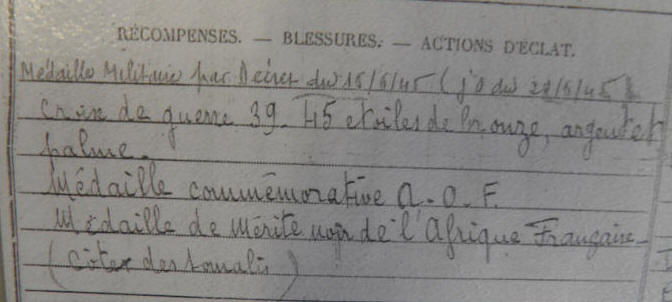 RÉCOMPENSES. — BLESSURES. — ACTIONS D'ÉCLAT.
Médaille Militaire par Décret du 15/6/45 (j.o du 22/6/45)
Croix de guerre 39-45 etoiles de bronze, argent et
palme.
Médaille commémorative A.O.F
Médaille de Mérite noir de l'Afrique Française
(Côte des Somalis)